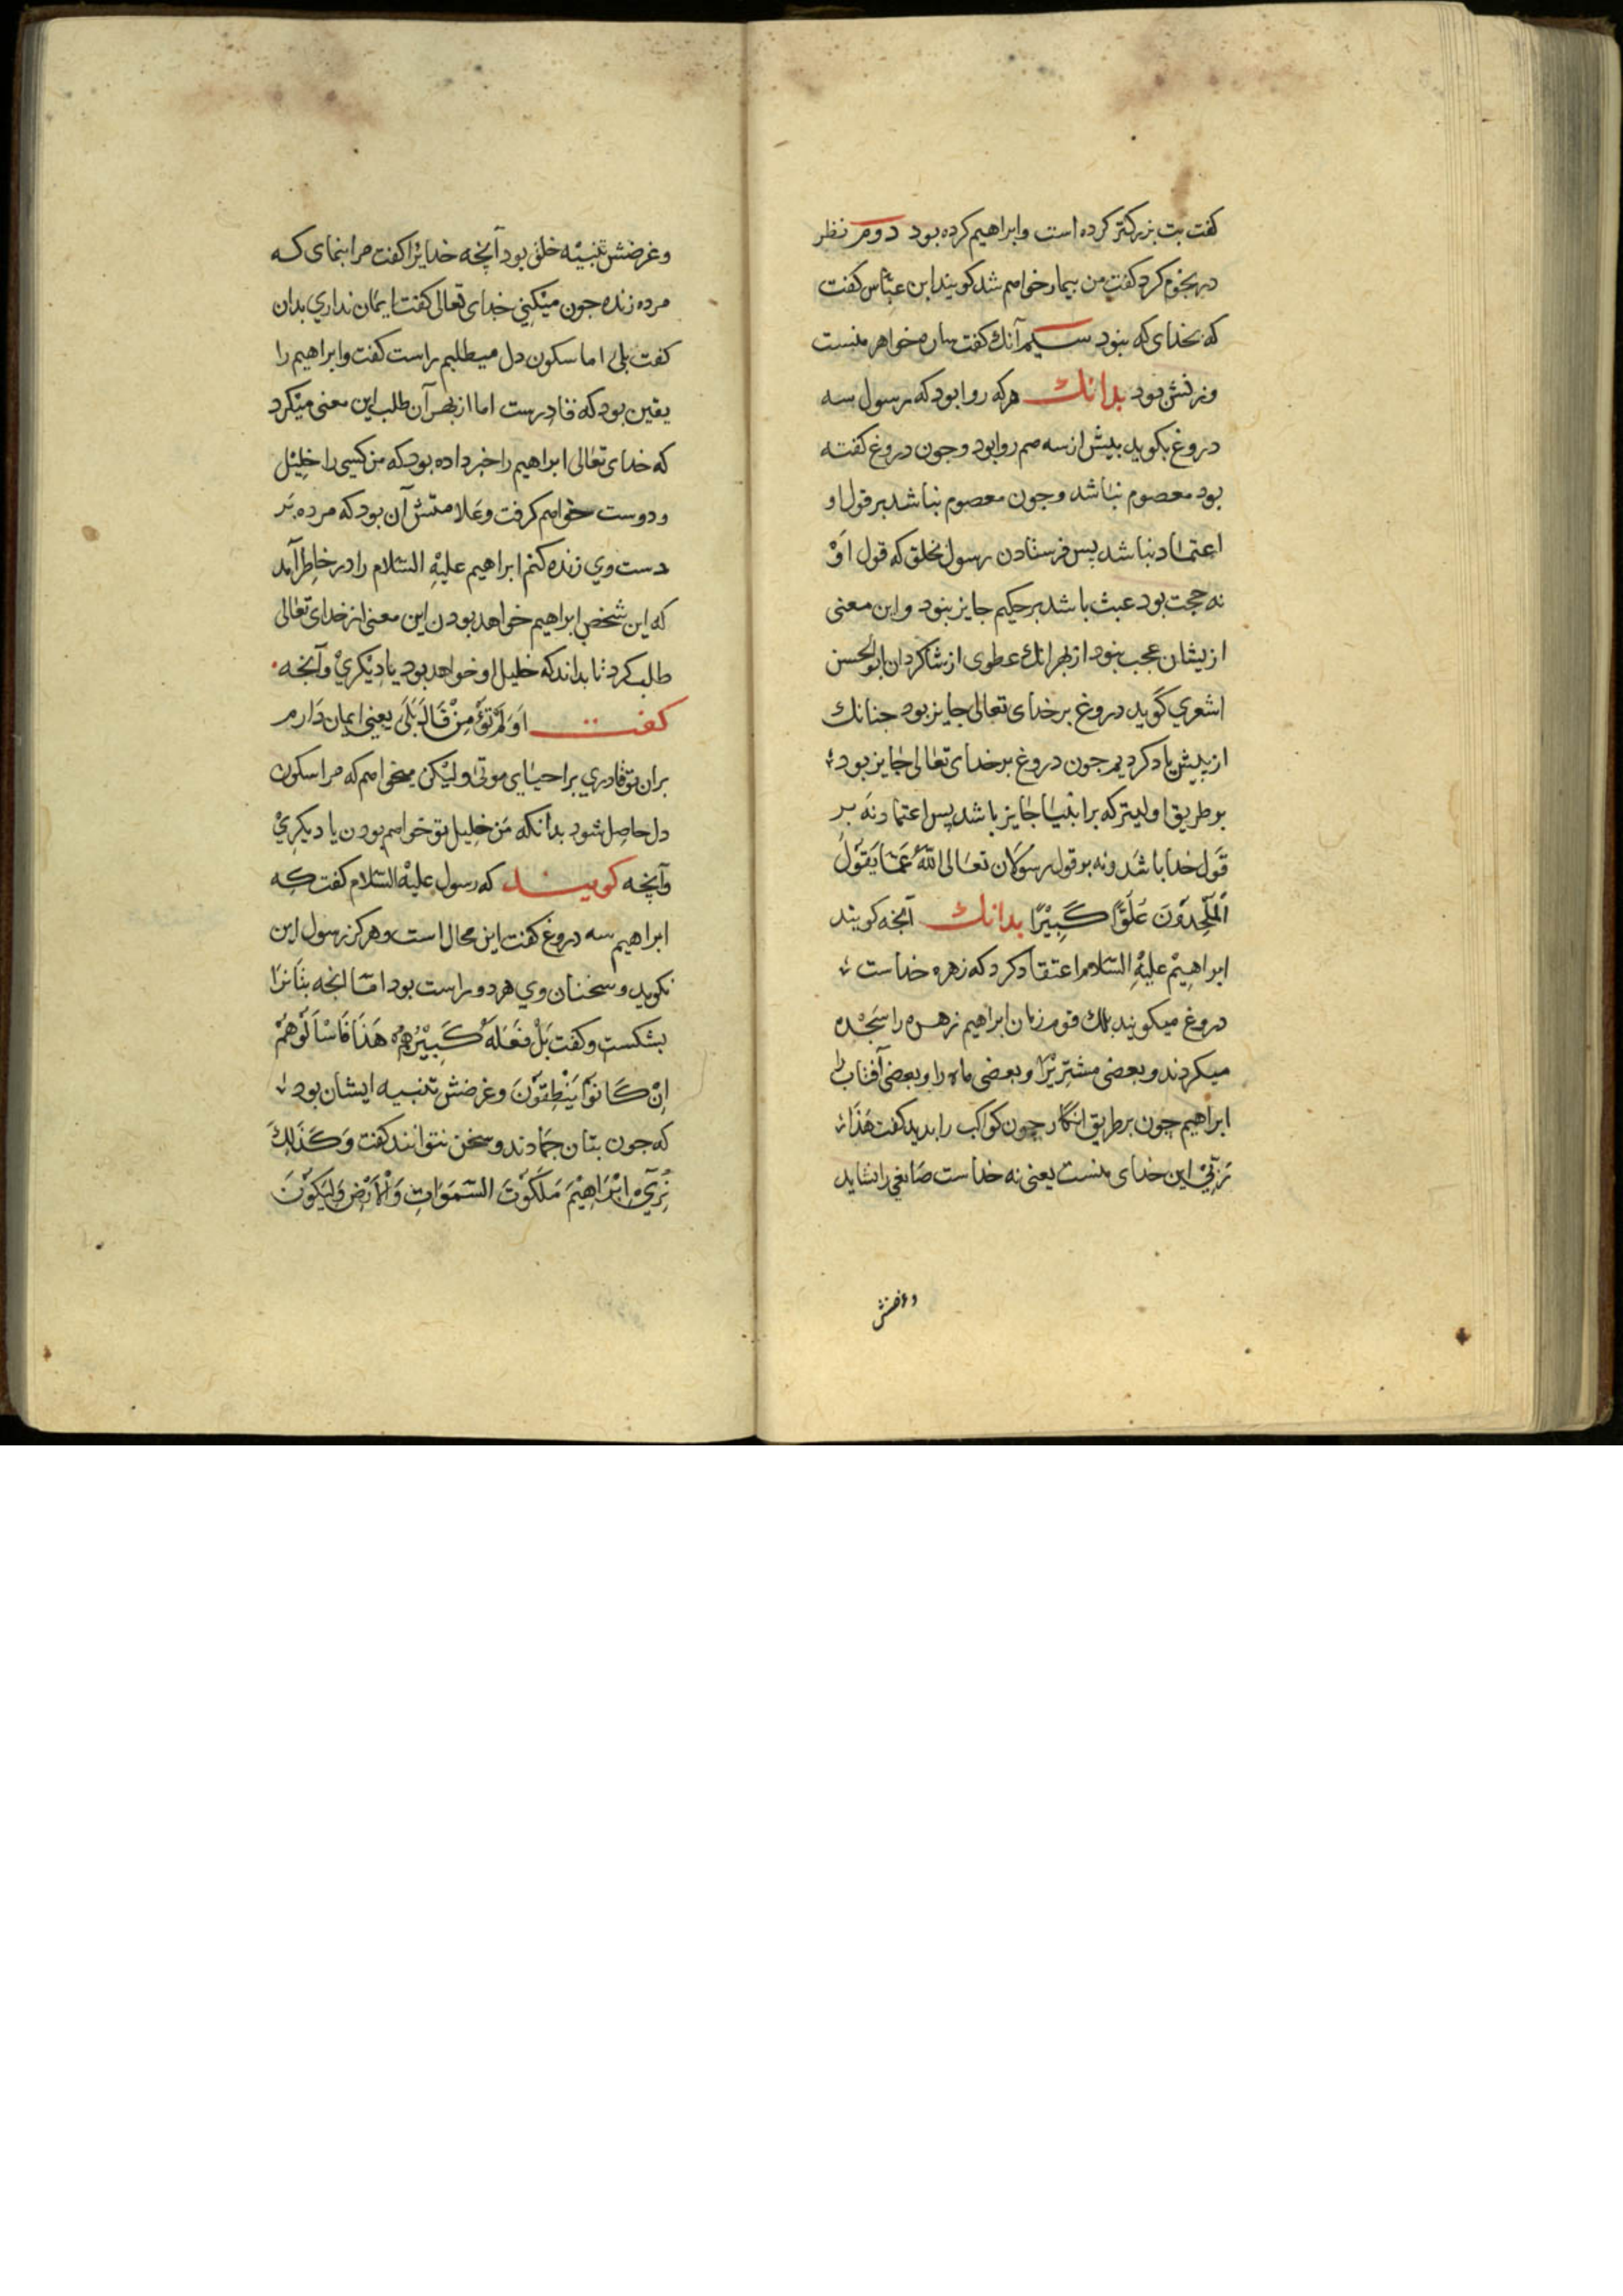 کفت بت بزرکتر کرده است وابراهیم کرده بود دوم نظر
در نجوم کرد کفت من بیمار خواهم شد کویند ابن عباس کفت
که بخدای که نبود سیم آنك کفت ساره خواهر منست
وزنش بود بدانك هرکه روا بود که رسول سه
دروغ بکوید بیش از سه هم روا بود وجون دروغ کفته
بود معصوم نباشد وجون معصوم نباشد بر قول او
اعتماد نباشد پس فرستادن رسول بخلق که قول او
نه حجت بود عبث باشد بر حکیم جایز نبود واین معنی
ازیشان عجب نبود از بهر انك عطوی از شاکردان ابو الحسن
اشعري کوید دروغ بر خدای تعالی جایز بود جنانك
از پیش یاد کردیم جون دروغ بر خدای تعالی جایز بود
بر طریق اولیتر که بر انبیا جایز باشد پس اعتماد نه بر
قول خدا باشد ونه بر قول رسولان تعالی اللّٰه عَمّا یَقُوْلُ
اَلْمُلْحِدُوْنَ عُلُوًّا کَبِیْرًا بدانك آنجه کویند
ابراهیم علیه السّلام اعتقاد کرد که زهره خداست
دروغ میکویند بلك قوم زمان ابراهیم زهره را سجده
میکردند وبعضی مشتریرا وبعضی ماه را وبعضی آفتاب را
ابراهیم جون بر طریق انکار جون کواکب را بدید کفت هٰذا
رَبّیْ این خدای منست یعنی نه خداست صانعی را نشاید
وغرضش
وغرضش تنبیه خلق بود آنجه خدایرا کفت مرا بنمای که
مرده زنده جون میکنی خدای تعالی کفت ایمان نداري بدان
کفت بلی اما سکون دل میطلبم راست کفت وابراهیم را
یقین بود که قادرست اما از بهر آن طلب این معنی میکرد
که خدای تعالی ابراهیم را خبر داده بود که من کسی را خلیل
ودوست خواهم کرفت وعلامتش آن بود که مرده بر
دست وي زنده کنم ابراهیم علیه السّلام را در خاطر آمد
که این شخص ابراهیم خواهد بودن این معنی از خدای تعالی
طلب کرد تا بداند که خلیل او خواهد بود یا دیکري وآنجه
کفت اَوَلَمْ تُؤْمِنْ قَالَ بَلَی یعنی ایمان دارم
بران تو قادري بر احیای موتی ولیکن میخواهم که مرا سکون
دل حاصل شود بدانکه من خلیل تو خواهم بودن یا دیکري
وآنجه کویند که رسول علیه السّلام کفت که
ابراهیم سه دروغ کفت این محال است وهرکز رسول این
نکوید وسخنان وي هر دو راست بود امّا انجه بتانرا
بشکست وکفت بَلْ فَعَلَهُ کَبِیْرُهُمْ هَذَا فَاسْاَلُوْهُمْ
اِنْ کَانُوْا یَنْطِقُوْنَ وغرضش تنبیه ایشان بود
که جون بتان جمادند وسخن نتوانند کفت وَکَذَلِكَ
نُرِيْ اِبْرَاهِیْمَ مَلَکُوْتَ السَّمَوَاتِ وَالْاَرْضِ وَلِیَکُوْنَ